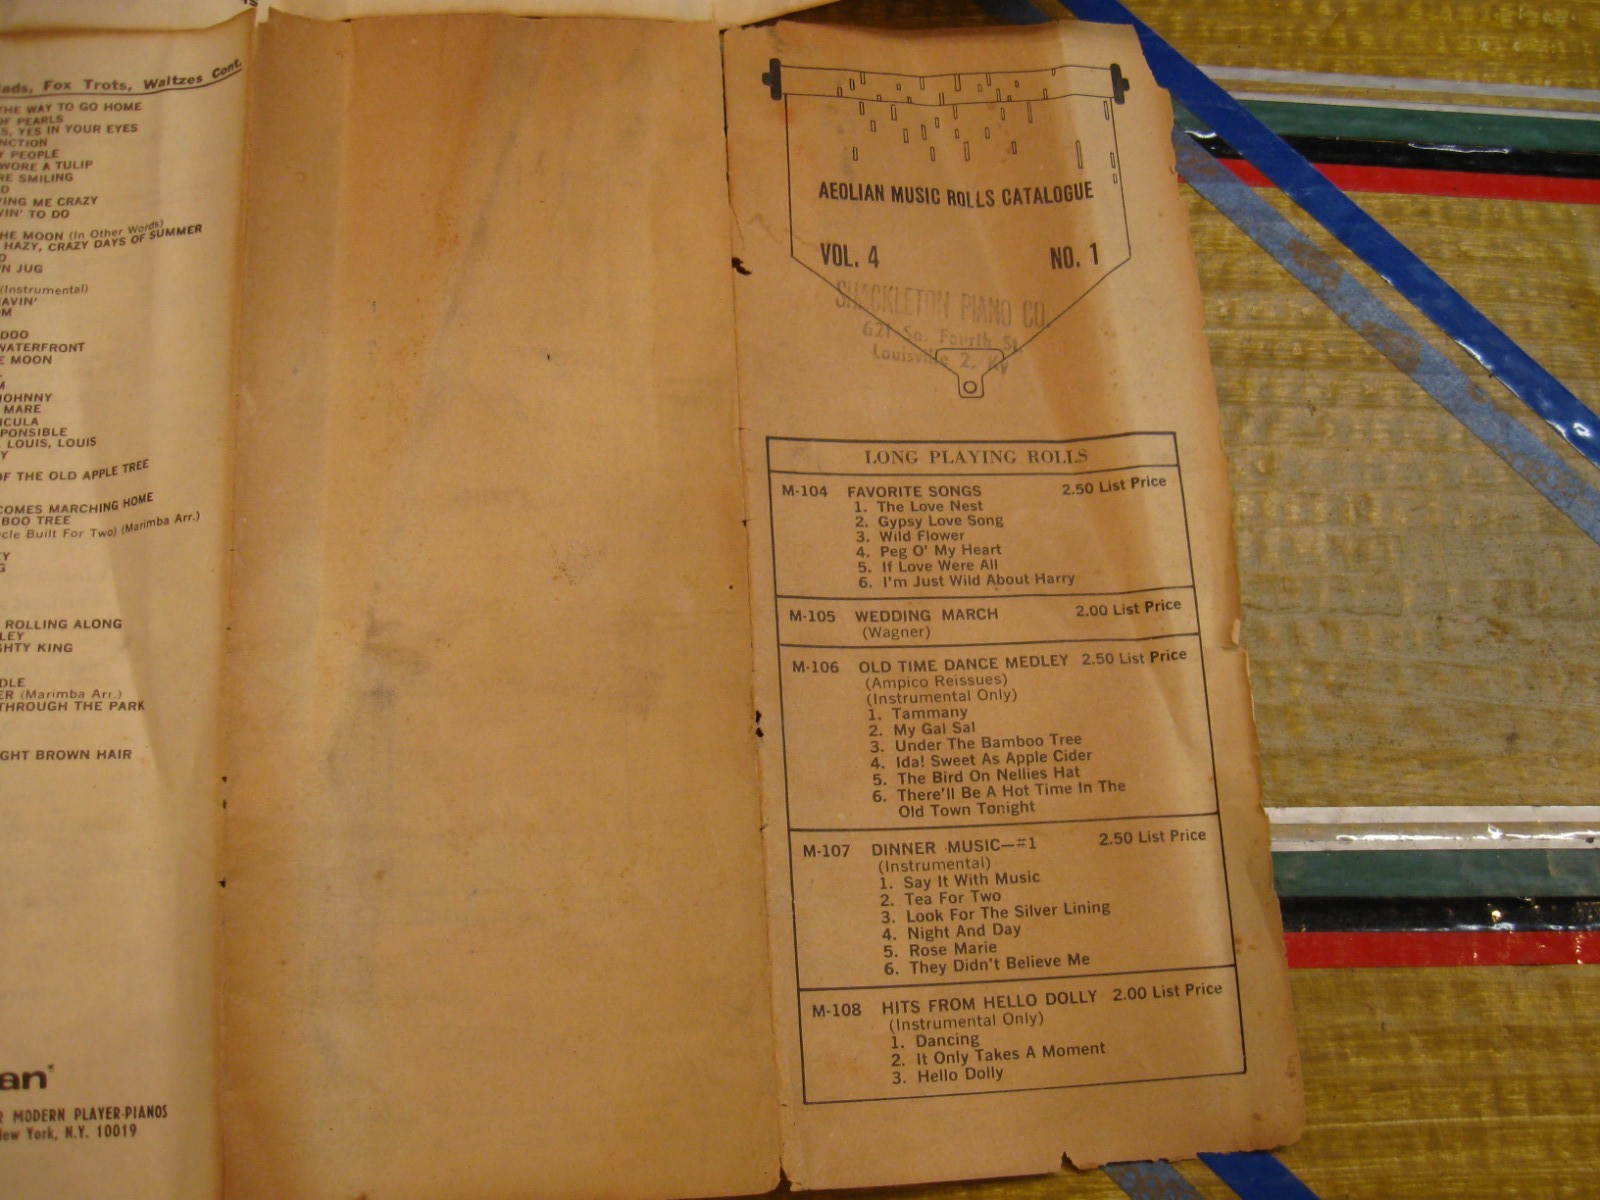 ads, Fox Trots, Waltzes Cont.
THE WAY TO GO HOME
OF PEARLS
S, YES IN YOUR EYES
NCTION
Y PEOPLE
WORE A TULIP
RE SMILING
D
VING ME CRAZY
VIN' TO DO
HE MOON (In Other Words)
HAZY, CRAZY DAYS OF SUMMER
O
N JUG
(Instrumental)
AVIN'
OM
DOO
WATERFRONT
E MOON
M
JOHNNY
MARE
ICULA
PONSIBLE
, LOUIS, LOUIS
Y
OF THE OLD APPLE TREE
COMES MARCHING HOME
BOO TREE
cle Built For Two) (Marimba Arr.)
Y
G
ROLLING ALONG
LEY
GHTY KING
DLE
ER (Marimba Arr.)
THROUGH THE PARK
GHT BROWN HAIR
an
R MODERN PLAYER-PIANOS
New York, N.Y. 10019
AEOLIAN MUSIC ROLLS CATALOGUE
VOL. 4 NO. 1
SHACKLETON PIANO CO.
621 So. Fourth St.
Louisville 2, Ky
LONG PLAYING ROLLS
M-104 FAVORITE SONGS 2.50 List Price
1. The Love Nest
2. Gypsy Love Song
3. Wild Flower
4. Peg O' My Heart
5. If Love Were All
6. I'm Just Wild About Harry
M-105 WEDDING MARCH 2.00 List Price
(Wagner)
M-106 OLD TIME DANCE MEDLEY 2.50 List Price
(Ampico Reissues)
(Instrumental Only)
1. Tammany
2. My Gal Sal
3. Under The Bamboo Tree
4. Ida! Sweet As Apple Cider
5. The Bird On Nellies Hat
6. There'll Be A Hot Time In The
Old Town Tonight
M-107 DINNER MUSIC—#1 2.50 List Price
(Instrumental)
1. Say It With Music
2. Tea For Two
3. Look For The Silver Lining
4. Night And Day
5. Rose Marie
6. They Didn't Believe Me
M-108 HITS FROM HELLO DOLLY 2.00 List Price
(Instrumental Only)
1. Dancing
2. It Only Takes A Moment
3. Hello Dolly